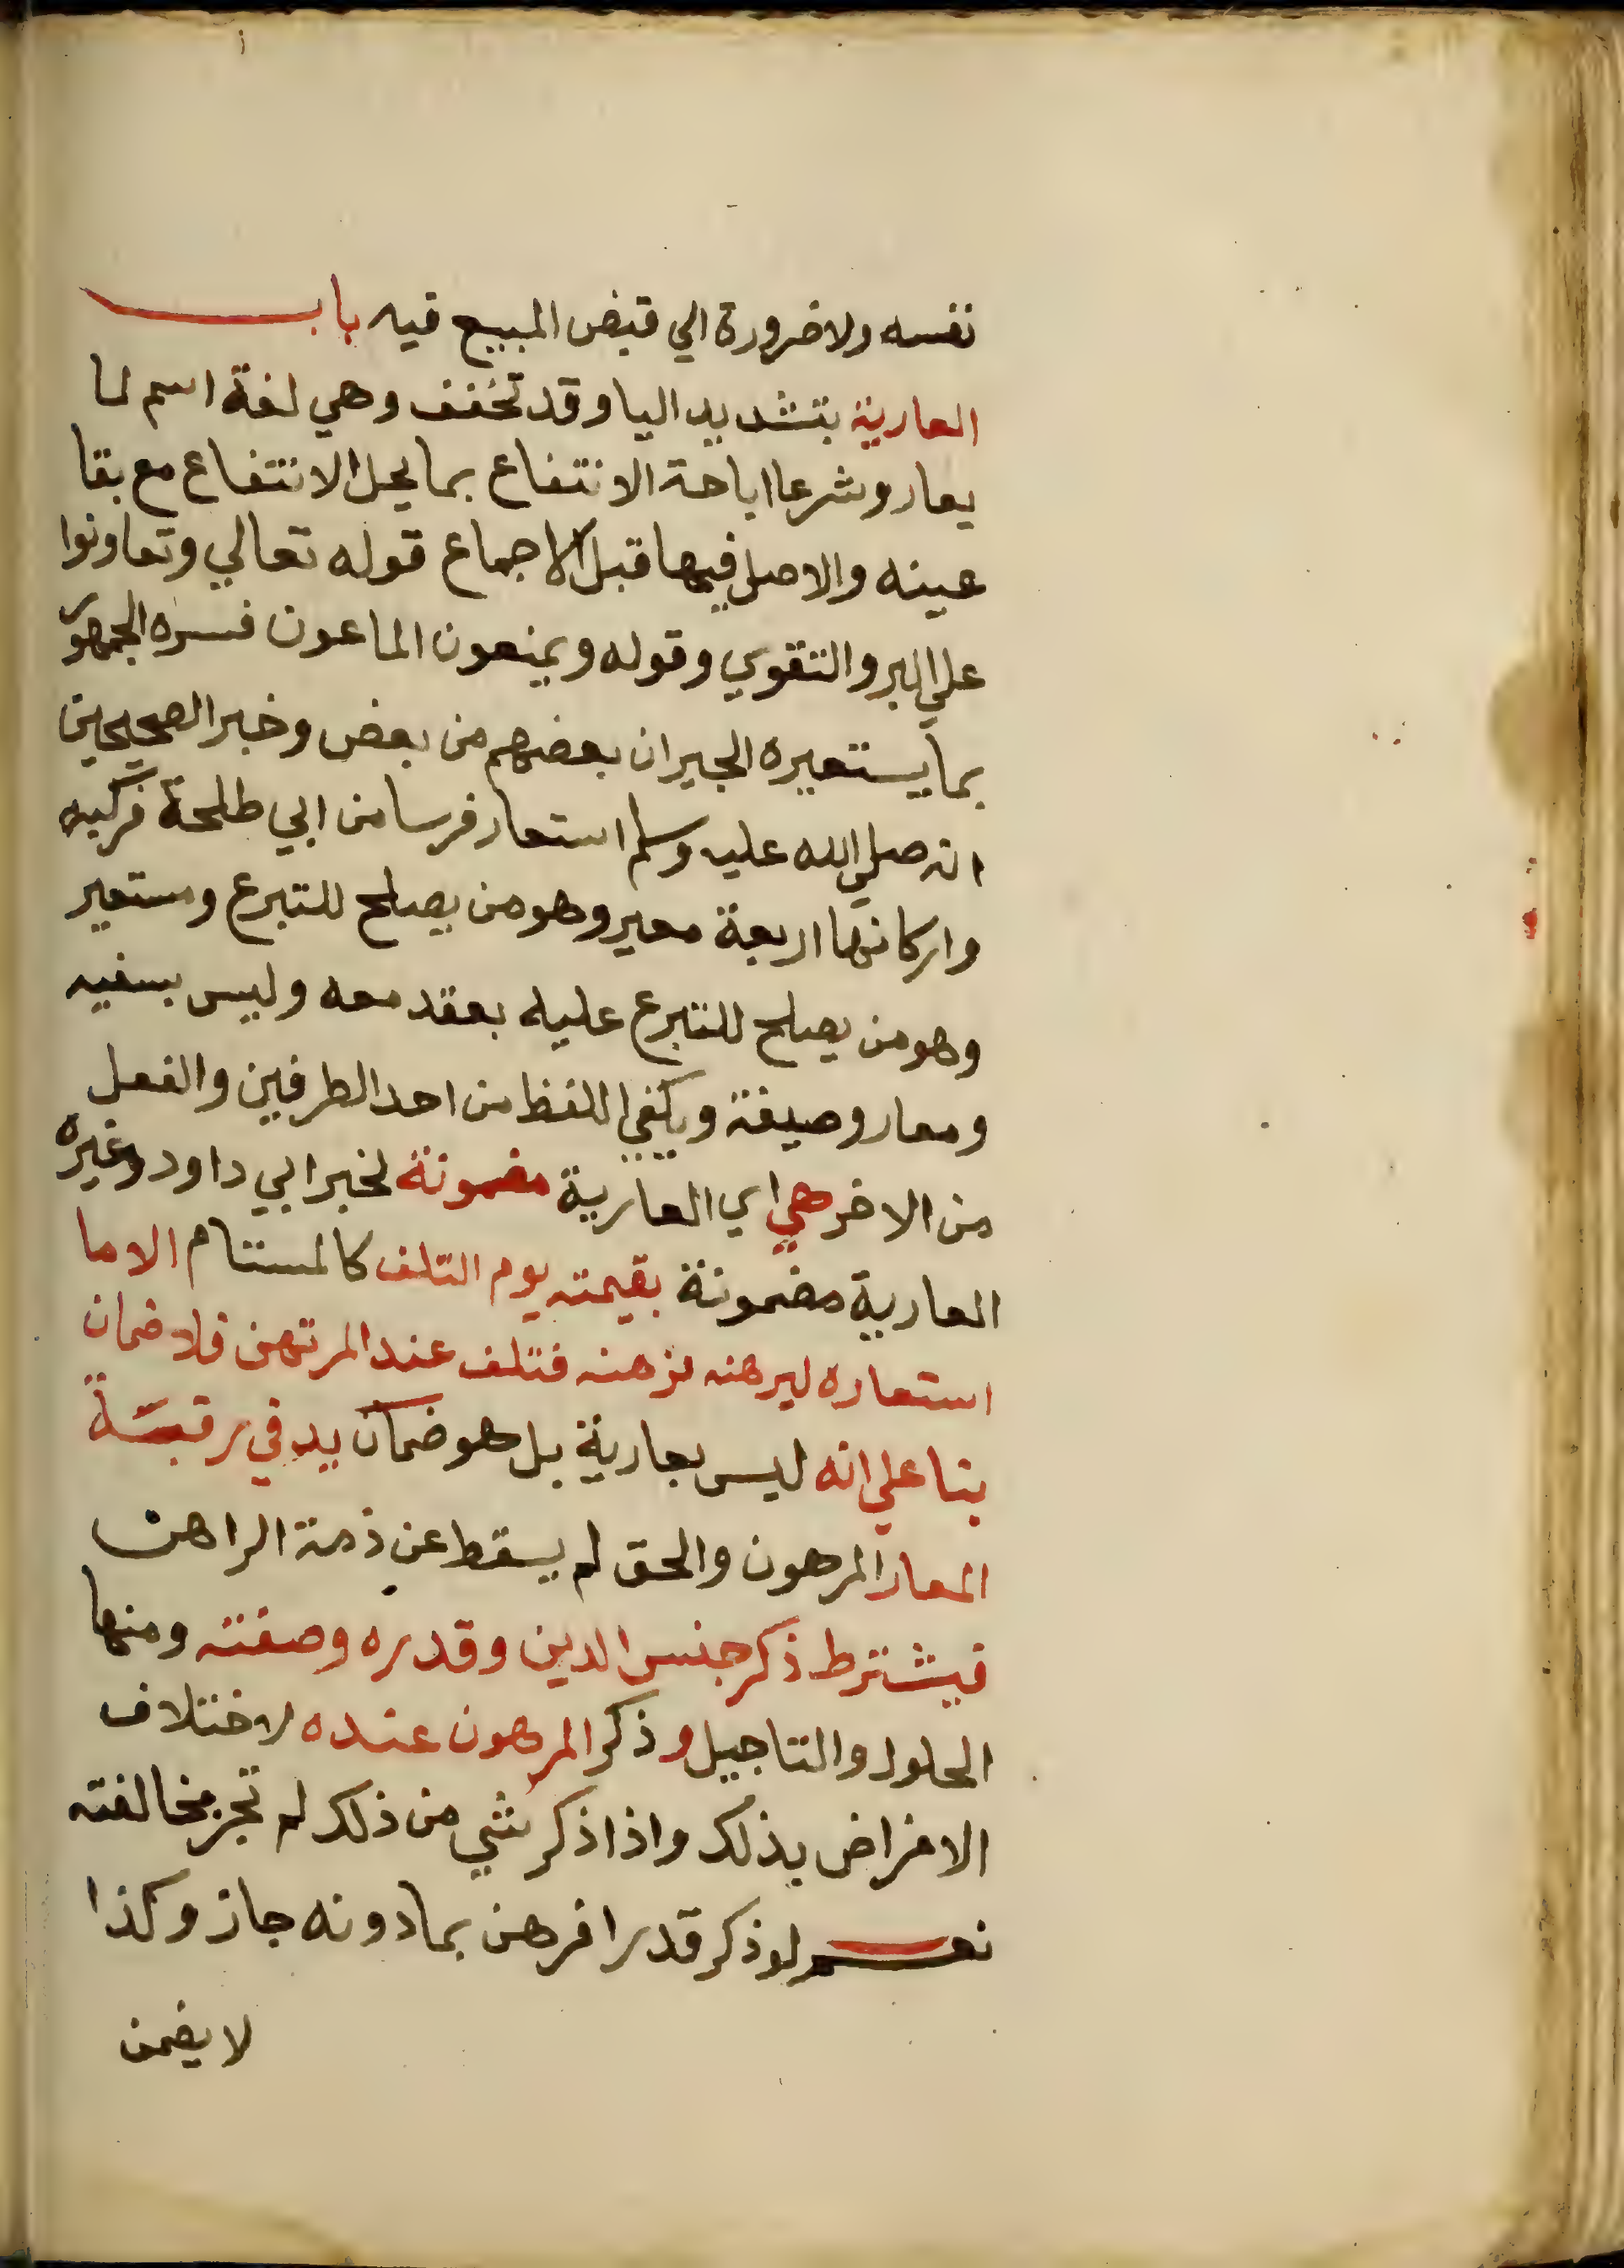 نفسه ولا ضرورة الي قبض المبيع فيه باب
العارية بتشديد اليا وقد تخفف وهي لغة اسم لما
يعار وشرعا اباحة الانتفاع بما يحل الانتفاع مع بقا
عينه والاصل فيها قبل الاجماع قوله تعالي وتعاونوا
علي البر والتقوي وقوله ويمنعون الماعون فسره الجمهور
بما يستعيره الجيران بعضهم من بعض وخبر الصحيحين
انه صلي الله عليه وسلم استعار فرسا من ابي طلحة فركبه
واركانها اربعة معير وهو من يصلح للتبرع ومستعير
وهو من يصلح للتبرع عليه بعقد معه وليس بسفيه
ومعار وصيغة ويكفي اللفظ من احد الطرفين والفعل
من الاخر هي اي العارية مضمونة لخبر ابي داود وغيره
العارية مضمونة بقيمته يوم التلف كالمستام الا ما
استعاره ليرهنه فرهنه فتلف عند المرتهن فلا ضمان
بنا علي انه ليس بعارية بل هو ضمان يد في رقبة
المعار المرهون والحق لم يسقط عن ذمة الراهن
فيشترط ذكر جنس الدين وقدره وصفته ومنها
الحلول والتاجيل وذكر المرهون عنده لاختلاف
الاغراض بذلك واذا ذكر شي من ذلك لم تجز مخالفته
نعم لو ذكر قدرا فرهن بما دونه جاز وكذا
لا يضمن